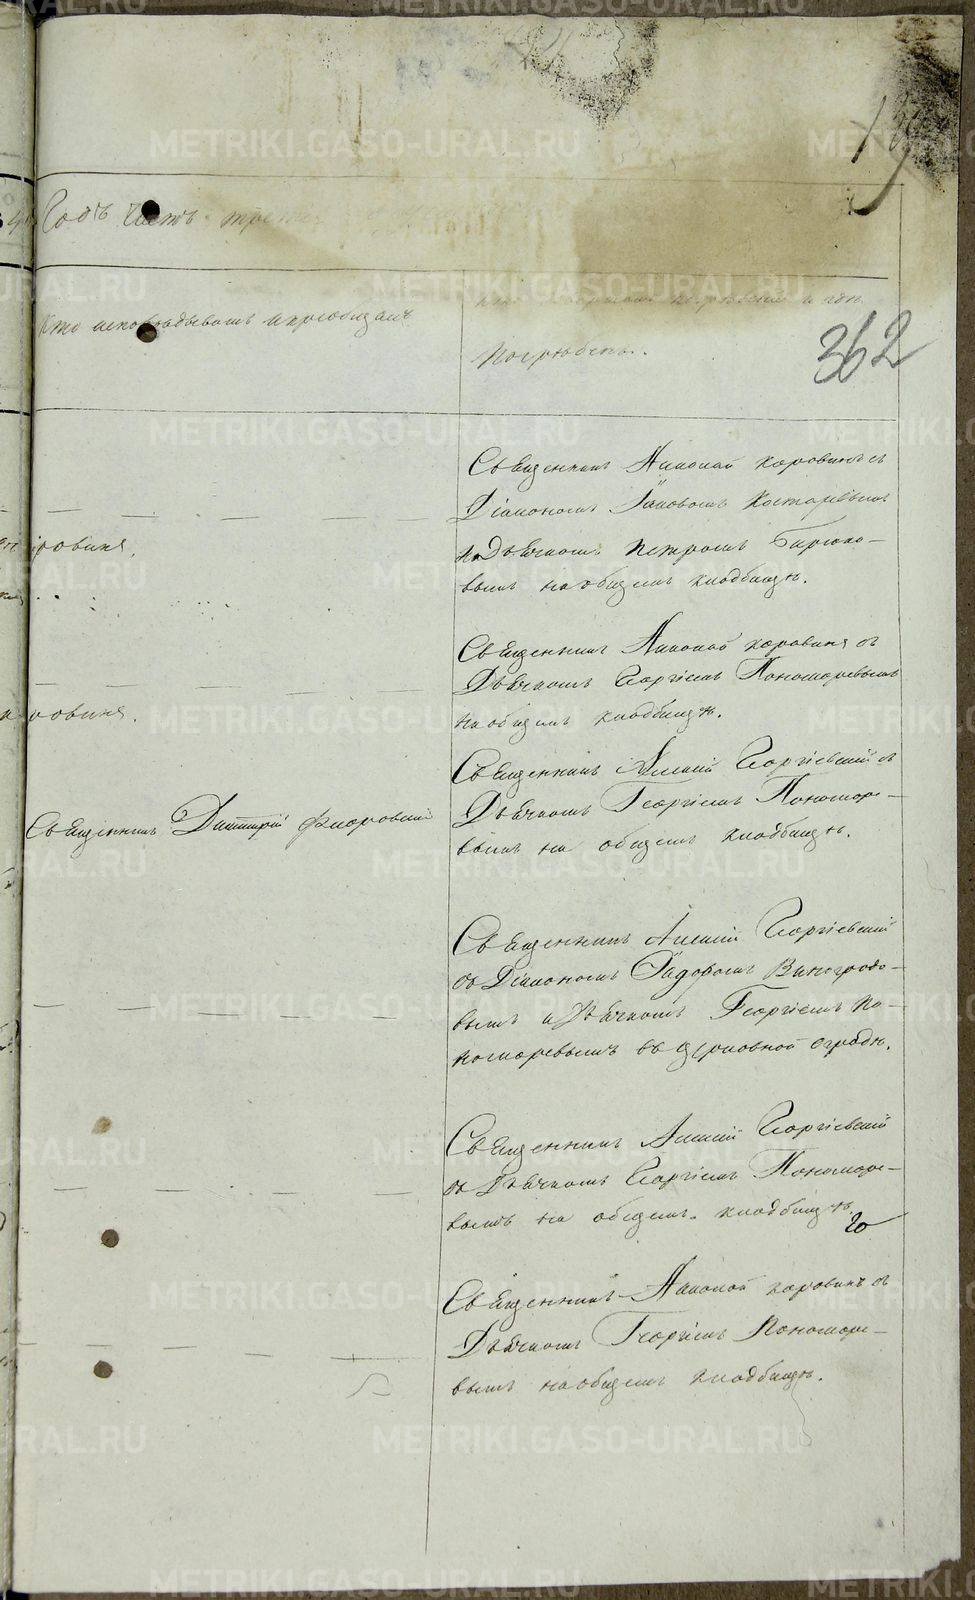 Годъ Часть
362
Кто исповѣдывалъ и пріобщалъ
погребенъ.
Священникъ Николай Коровинъ съ
Діакономъ Іаковомъ
и Дьячкомъ Петромъ Бирюко-
вымъ на общемъ кладбищѣ.
Священникъ Николай Коровинъ съ
Дьячкомъ Георгіемъ Пономаревымъ
на общемъ кладбищѣ.
Священникъ Димитрій Флоровскій
Священникъ Алексій Георгіевскій съ
Дьячкомъ Георгіемъ Пономаре-
вымъ на общемъ кладбищѣ.
Священникъ Алексій Георгіевскій
съ Діакономъ Виноградо-
вымъ и Дьячкомъ Георгіемъ По-
номаревымъ въ церковной оградѣ.
Священникъ Алексій Георгіевскій
съ Дьячкомъ Георгіемъ Пономаре-
вымъ на общемъ кладбищѣ.
Священникъ Николай Коровинъ съ
Дьячкомъ Георгіемъ Пономаре-
вымъ на общемъ кладбищѣ.
METRIKI.GASO-URAL.RU